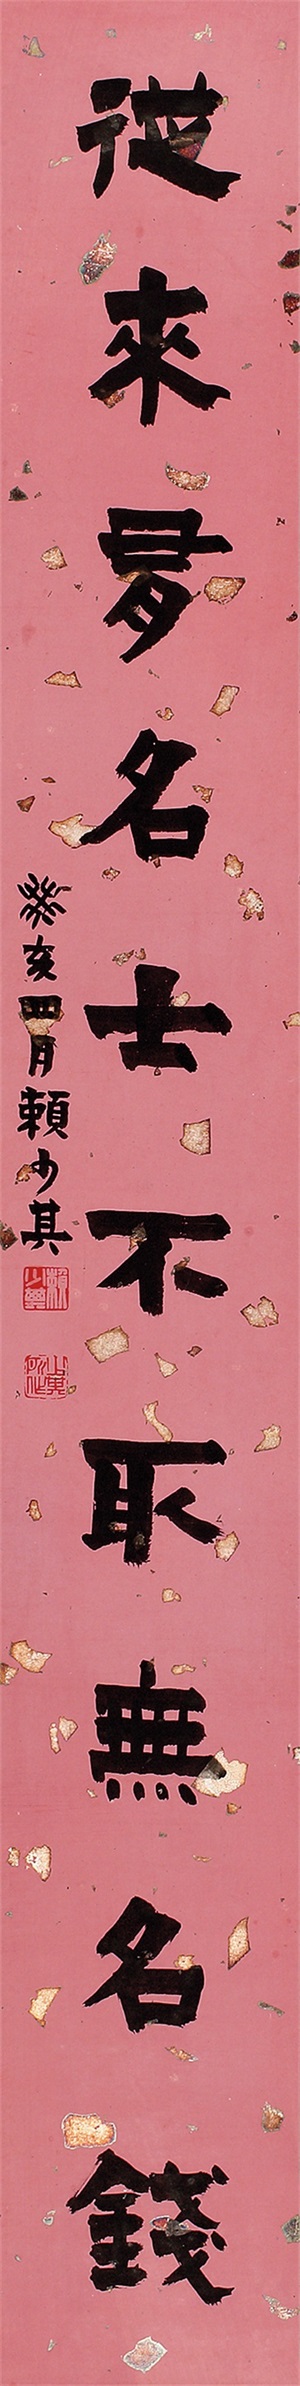 從來多名士不取無名錢
癸亥四月賴少其
賴少其